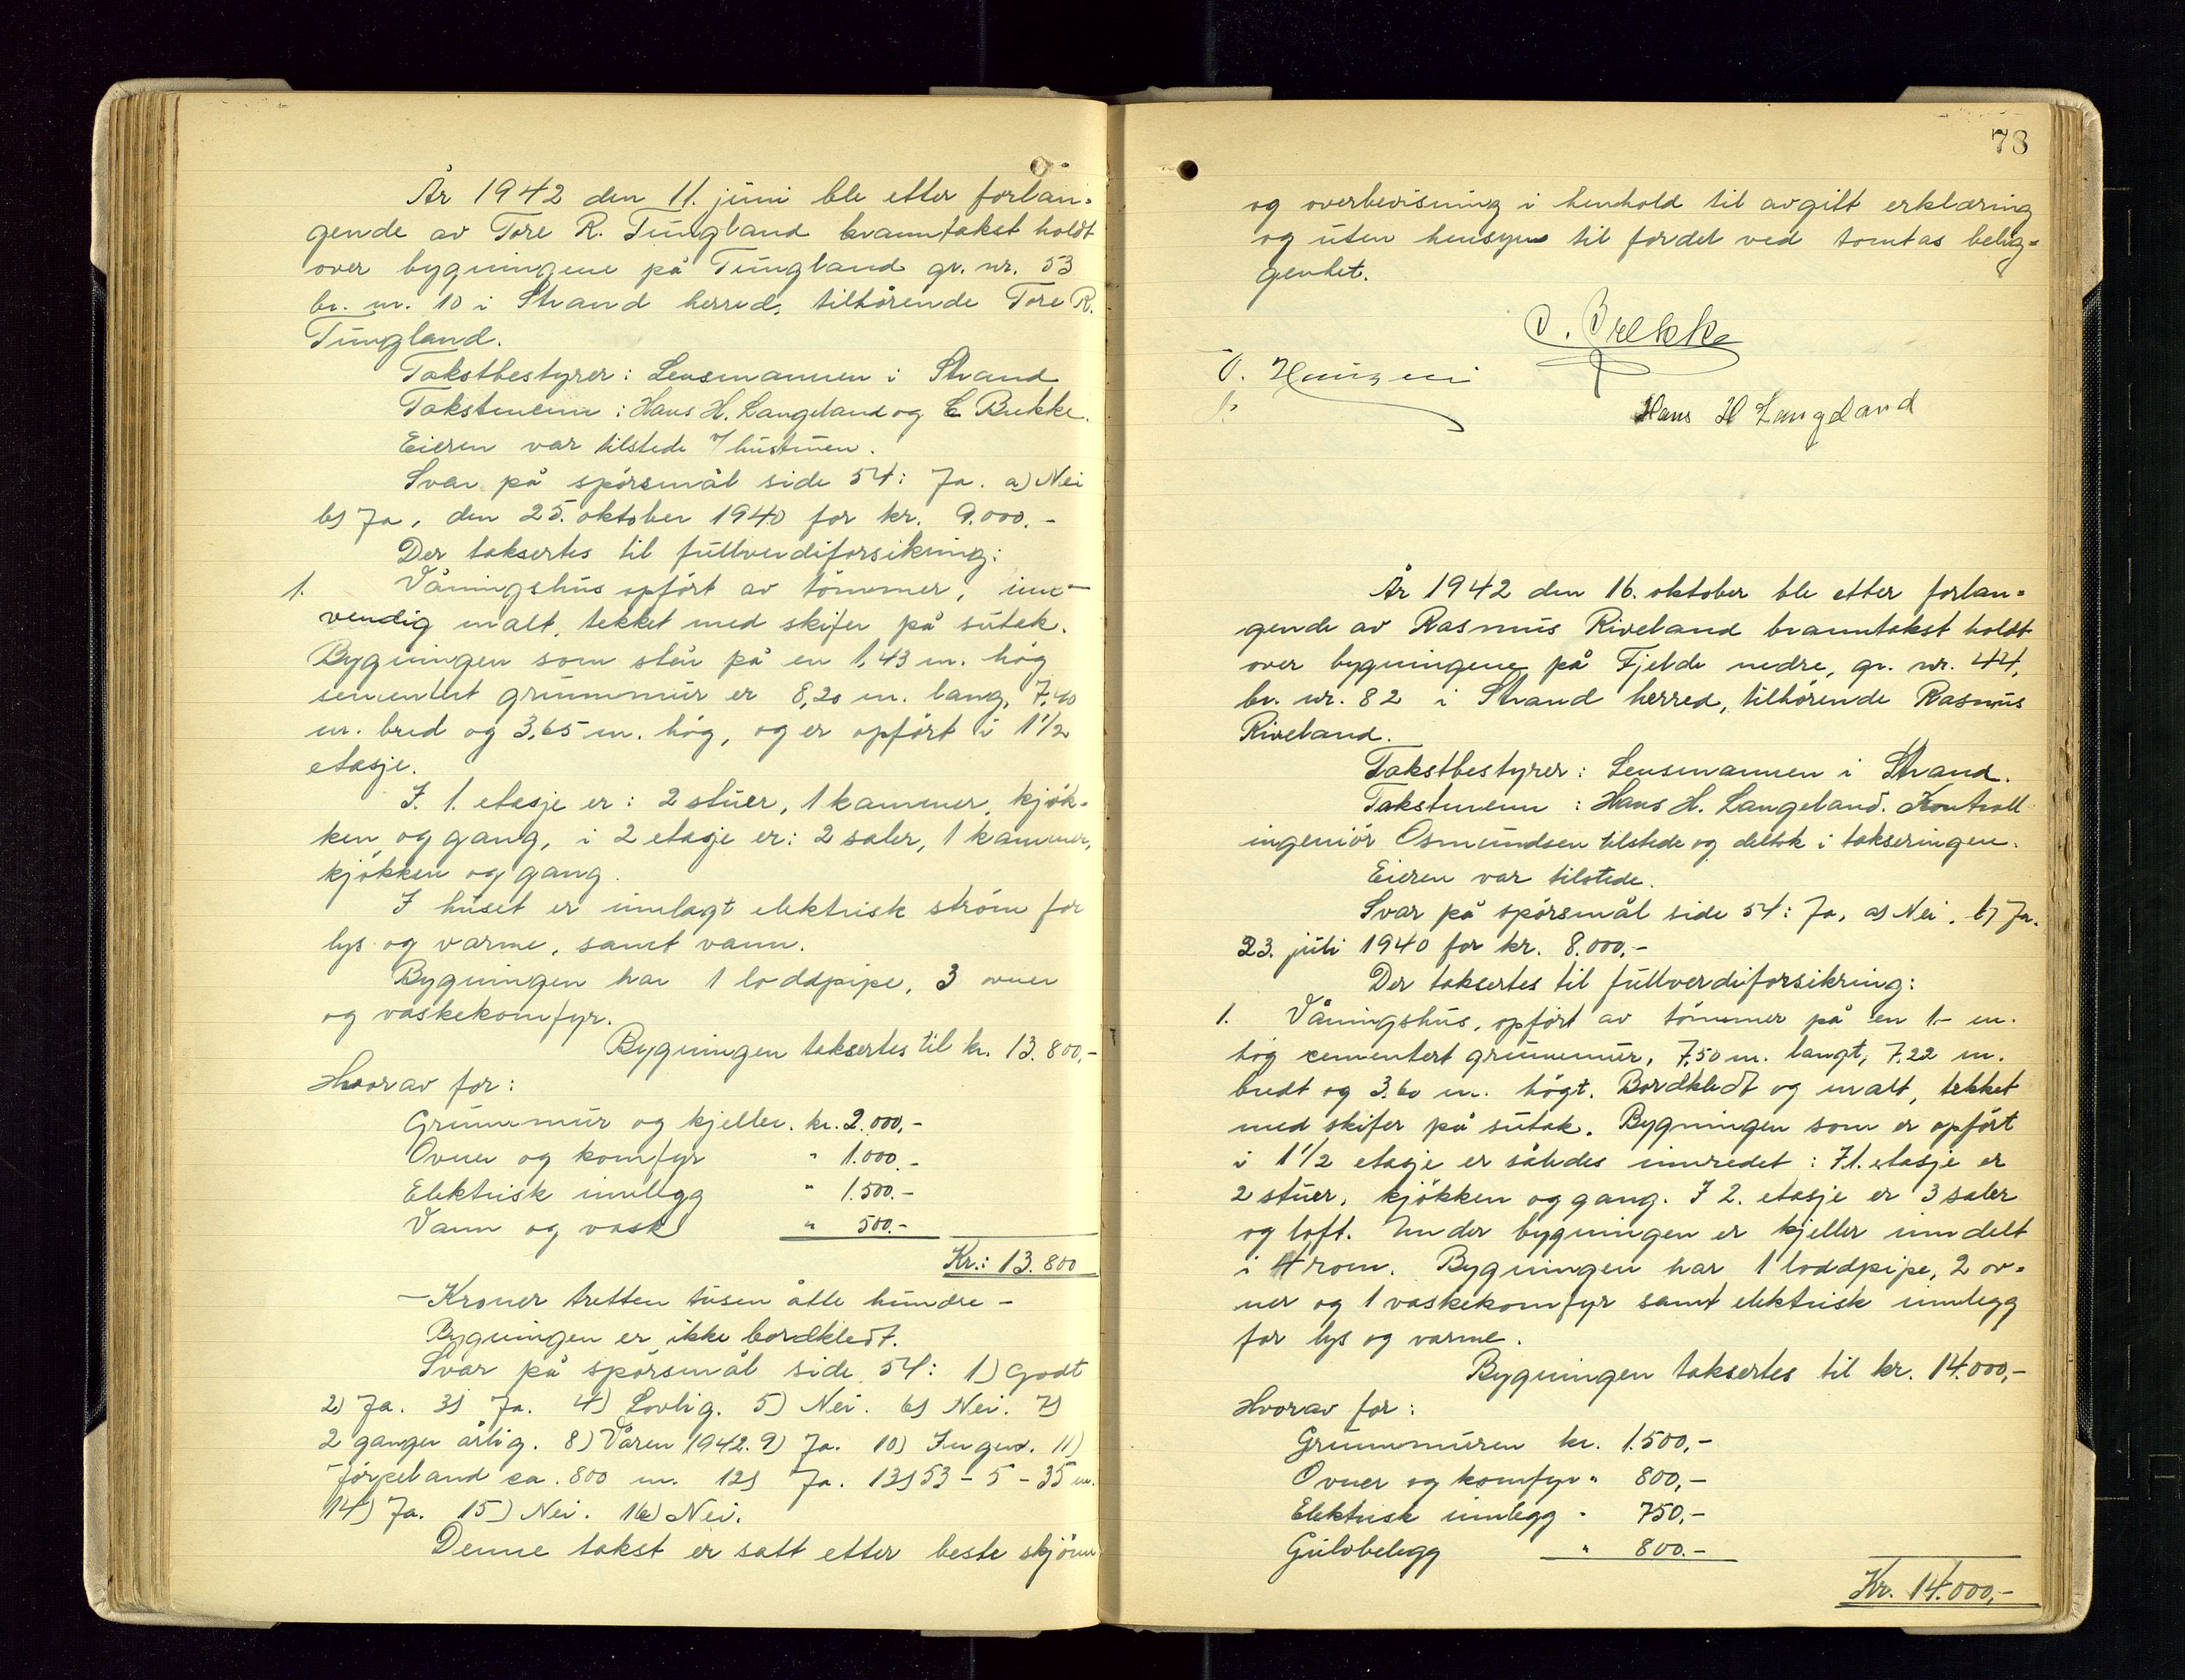 År 1942 den 11. juni ble etter forlan-
gende av Tore R. Tungland branntakst holdt
over bygningene på Tungland gr. nr. 53
br. nr. 10 i Strand herred, tilhørende Tore R.
Tungland.
Takstbestyrer: Lensmannen i Strand
Takstmenn: Hans H. Langeland og C Brekke.
Eieren var tilstede v/ hustruen.
Svar på spørsmål side 54: Ja. a) Nei
b) Ja, den 25. oktober 1940 for kr. 9.000.-
Der taksertes til fullverdiforsikring:
1. Våningshus opført av tømmer, inn-
vendig malt, tekket med skifer på sutak.
Bygningen som står på en 1,43 m. høg
sementert grunnmur er 8,20 m. lang, 7,40
m. bred og 3,65 m. høg, og er opført i 1 1/2
etasje.
I. 1. etasje er: 2 stuer, 1 kammer, kjøk-
ken og gang, i 2 etasje er: 2 saler, 1 kammer,
kjøkken og gang.
I huset er innlagt elektrisk strøm for
lys og varme, samt vann.
Bygningen har 1 loddpipe, 3 ovner
og vaskekomfyr.
Bygningen taksertes til kr. 13.800,-
Hvorav for:
Grunnmur og kjeller. kr. 2.000,-
Ovner og komfyr " 1.000.-
Elektrisk innlegg " 1.500.-
Vann og vask " 500.-
Kr.: 13.800
- Kroner tretten tusen åtte hundre -
Bygningen er ikke bordkledt.
Svar på spørsmål side 54: 1) Godt
2) Ja. 3) Ja. 4) Lovlig. 5) Nei. 6) Nei. 7)
2 ganger årlig. 8) Våren 1942. 9) Ja. 10) Ingen. 11)
Jørpeland ca. 800 m. 12) Ja. 13) 53 - 5 - 35 m.
14) Ja. 15) Nei. 16) Nei.
Denne takst er satt etter beste skjønn
78
og overbevisning i henhold til avgitt erklæring
og uten hensyn til fordel ved tomtas belig-
genhet.
C. Brekke
Hans H Langeland
År 1942 den 16. oktober ble etter forlan-
gende av Rasmus Riveland branntakst holdt
over bygningene på Fjelde nedre, gr. nr. 44,
br. nr. 82 i Strand herred, tilhørende Rasmus
Riveland.
Takstbestyrer: Lensmannen i Strand.
Takstmenn : Hans H. Langeland. Kontroll
ingeniør Osmundsen tilstede og deltok i takseringen.
Eieren var tilstede.
Svar på spørsmål side 54: Ja, a) Nei, b) Ja.
23. juli 1940 for kr. 8.000,-
Der taksertes til fullverdiforsikring:
1. Våningshus, opført av tømmer på en 1.- m.
høg cementert grunnmur, 7,50 m. langt, 7,22 m.
bredt og 3.60 m. høgt. Bordkledt og malt, tekket
med skifer på sutak. Bygningen som er opført
i 1 1/2 etasje er således innredet: I 1. etasje er
2 stuer, kjøkken og gang. I 2. etasje er 3 saler
og loft. Under bygningen er kjeller inndelt
i 4 rom. Bygningen har 1 loddpipe, 2 ov-
ner og 1 vaskekomfyr samt elektrisk innlegg
for lys og varme.
Bygningen taksertes til kr. 14.000,-
Hvorav for:
Grunnmuren kr. 1.500,-
Ovner og komfyr " 800,-
Elektrisk innlegg " 750,-
Gulvbelegg " 800.-
Kr. 14.000,-